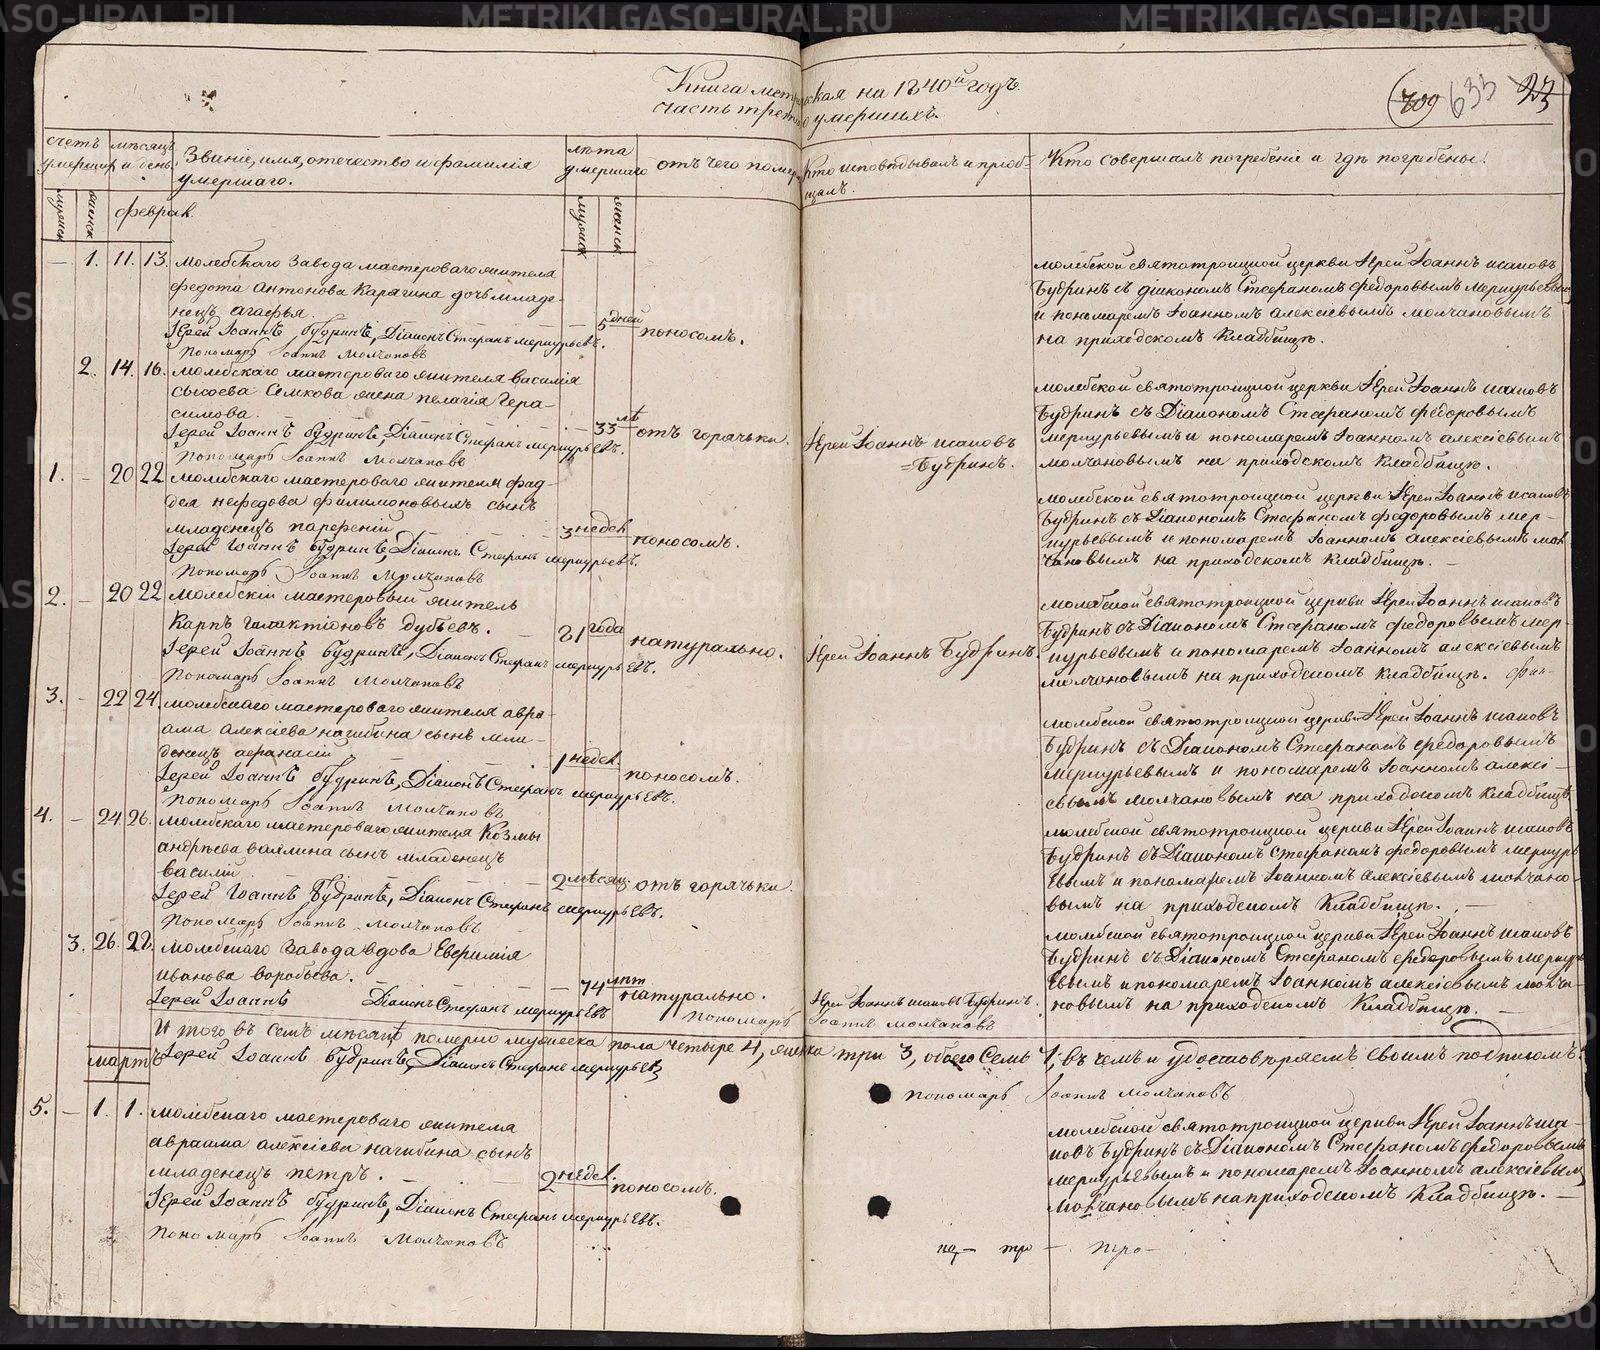 METRIKI.GASO-URAL.RU
Книга метрическая на 1840й годъ.
часть третія о умершихъ.
709 635 23
счетъ умершихъ
мѣсяцъ и день.
Званіе, имя, отечество и фамилія умершаго.
лѣта умершаго
отъ чего померъ
Кто исповѣдывалъ и пріобщалъ.
Кто совершалъ погребеніе и гдѣ погребены.
мужск женск
феврал.
мужск женск
— 1. 11. 13. молебскаго завода мастероваго жителя
федота антонова Карягина дочь младе-
нецъ агафья.
5 дней поносомъ.
Іерей Іоаннъ Будринъ, Діаконъ Стефанъ меркурьевъ.
Пономарь Іоаннъ Молчановъ
молебской святотроицкой церкви Іерей Іоаннъ исаковъ
Будринъ съ діакономъ Стефаномъ федоровымъ меркурьевым
и пономаремъ Іоанномъ алексіевымъ молчановымъ
на приходскомъ кладбищѣ.
2. 14. 16. молебскаго мастероваго жителя василія
сысоева Семкова жена пелагія Гера-
симова.
33 лѣ отъ горячьки.
Іерей Іоаннъ Будринъ, Діаконъ Стефанъ меркурьевъ.
Пономарь Іоаннъ Молчановъ
Іерей Іоаннъ исаковъ
=Будринъ.
молебской святотроицкой церкви Іерей Іоаннъ исаковъ
Будринъ съ Діакономъ Стефаномъ федоровымъ
меркурьевымъ и пономаремъ Іоанномъ алексіевымъ
молчановымъ на приходскомъ кладбищѣ.
1. — 20 22 молебскаго мастероваго жителя фад-
дея нефедова филимоновыхъ сынъ
младенецъ парфеній
3 недел. поносомъ.
Іерей Іоаннъ Будринъ, Діаконъ Стефанъ меркурьевъ.
Пономарь Іоаннъ Молчановъ
молебской святотроицкой церкви Іерей Іоаннъ исаковъ
Будринъ съ Діакономъ Стефаномъ федоровымъ мер-
курьевымъ и пономаремъ Іоанномъ алексіевымъ мол
чановымъ на приходскомъ кладбищѣ. —
2. — 20 22 молебскій мастеровый житель
Карпъ галактіоновъ дубьевъ.
21 года натурально.
Іерей Іоаннъ Будринъ, Діаконъ Стефанъ меркурьевъ.
Пономарь Іоаннъ Молчановъ
Іерей Іоаннъ Будринъ.
молебской святотроицкой церкви Іерей Іоаннъ исаковъ
Будринъ съ Діакономъ Стефаномъ федоровымъ мер-
курьевымъ и пономаремъ Іоанномъ алексіевымъ
молчановымъ на приходскомъ кладбищѣ.
3. — 22 24. молебскаго мастероваго жителя авра-
ама алексіева нагибина сынъ мла-
денецъ афанасій
1 недел. поносомъ.
Іерей Іоаннъ Будринъ, Діаконъ Стефанъ меркурьевъ.
Пономарь Іоаннъ Молчановъ
молебской святотроицкой церкви Іерей Іоаннъ исаковъ
Будринъ съ Діакономъ Стефаномъ федоровымъ
меркурьевымъ и пономаремъ Іоанномъ алексі-
евымъ молчановымъ на приходскомъ кладбищѣ.
4. — 24. 26. молебскаго мастероваго жителя Козмы
андрѣева валмина сынъ младенецъ
василій
2 мѣсяц. отъ горячьки.
Іерей Іоаннъ Будринъ, Діаконъ Стефанъ меркурьевъ.
Пономарь Іоаннъ Молчановъ
молебской святотроицкой церкви Іерей Іоаннъ исаковъ
Будринъ съ Діакономъ Стефаномъ федоровымъ меркурь
евымъ и пономаремъ Іоанномъ алексіевымъ молчано-
вымъ на приходскомъ кладбищѣ. —
3. 26. 28. молебскаго завода вдова Евфимія
иванова воробьева.
74 лѣт натурально.
Іерей Іоаннъ Діаконъ Стефанъ меркурьевъ Пономарь Іоаннъ молчановъ
Іерей Іоаннъ исаковъ Будринъ.
молебской святотроицкой церкви Іерей Іоаннъ исаковъ
Будринъ съ Діакономъ Стефаномъ федоровымъ меркурь
евымъ и пономаремъ Іоанномъ алексіевымъ молча-
новымъ на приходскомъ кладбищѣ. —
И того въ семъ мѣсяцѣ померло мужеска пола четыре 4, женска три 3, обоего Семь 7; въ чемъ и удостовѣряемъ своимъ подписомъ:
мартъ
Іерей Іоаннъ Будринъ, Діаконъ Стефанъ меркурьевъ
пономарь Іоаннъ молчановъ
5. — 1. 1. молебскаго мастероваго жителя
авраама алексіева нагибина сынъ
младенецъ петръ.
2 недел. поносомъ.
Іерей Іоаннъ Будринъ, Діаконъ Стефанъ меркурьевъ.
Пономарь Іоаннъ Молчановъ
молебской святотроицкой церкви Іерей Іоаннъ иса-
ковъ Будринъ съ Діакономъ Стефаномъ федоровымъ
меркурьевымъ и пономаремъ Іоанномъ алексіевым
молчановымъ на приходскомъ кладбищѣ. —